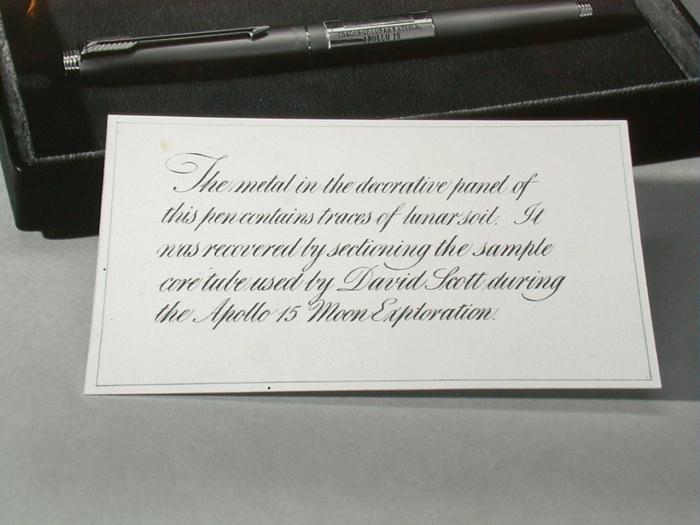 APOLLO 15
The metal in the decorative panel of
this pen contains traces of lunar soil. It
was recovered by sectioning the sample
core tube used by David Scott during
the Apollo 15 Moon Exploration.